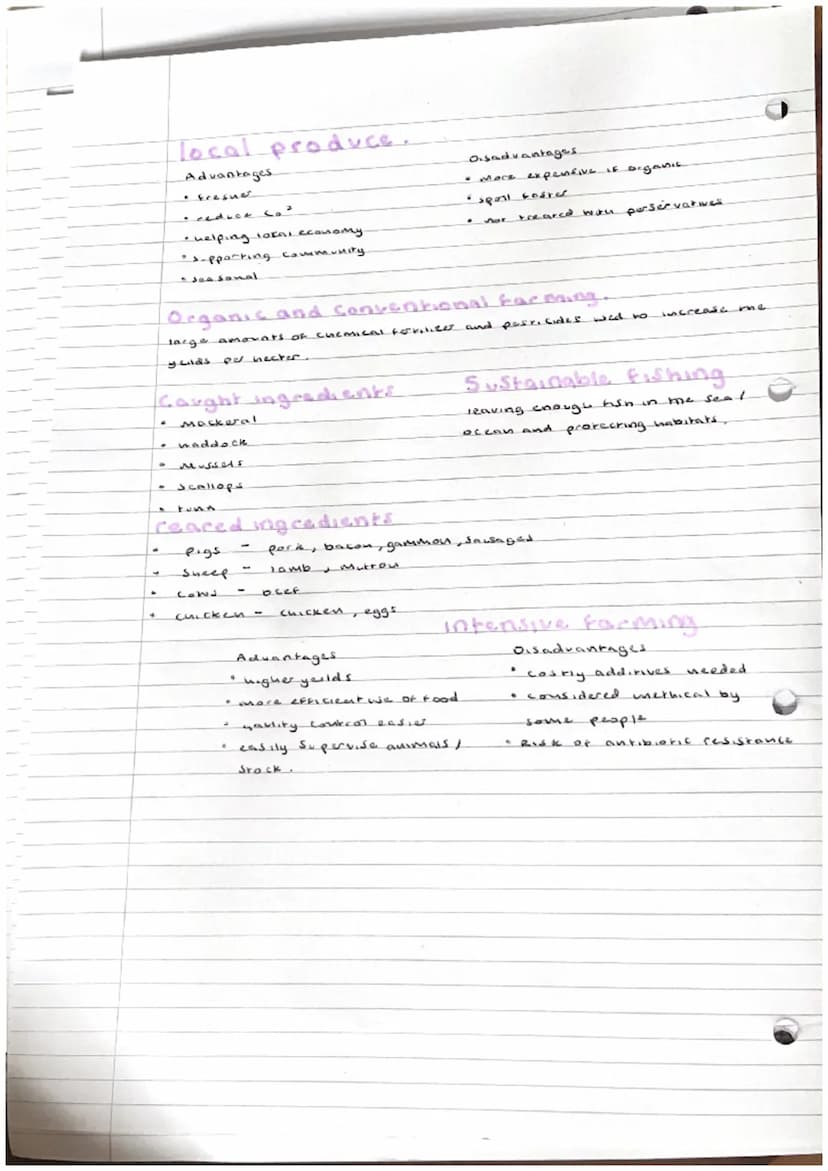 local produce.
Advantages
• fresher
• reduce Co²
• helping local economy
• supporting community
• seasonal
Disadvantages
• More expensive if organic
• spoil faster
• not treated with perservatives
Organic and Conventional farming.
large amounts of chemical fertilizer and pesticides used to increase the
yeilds per hecter.
Caught ingredients
• Mackeral
• haddock
• Mussels
• Scallops
• tuna
Sustainable fishing
leaving enough fish in the sea/
ocean and protecting habitats.
reared ingredients
• Pigs - pork, bacon, gammon, sausages
• Sheep - lamb, mutton
• Cows - beef
• chicken - chicken, eggs
Intensive farming
Advantages
• higher yeilds
• more efficient use of food
• quality control easier
• easily supervise animals/
stock.
Disadvantages
• Costly additives needed
• considered unethical by
some people
• Risk of antibiotic resistance